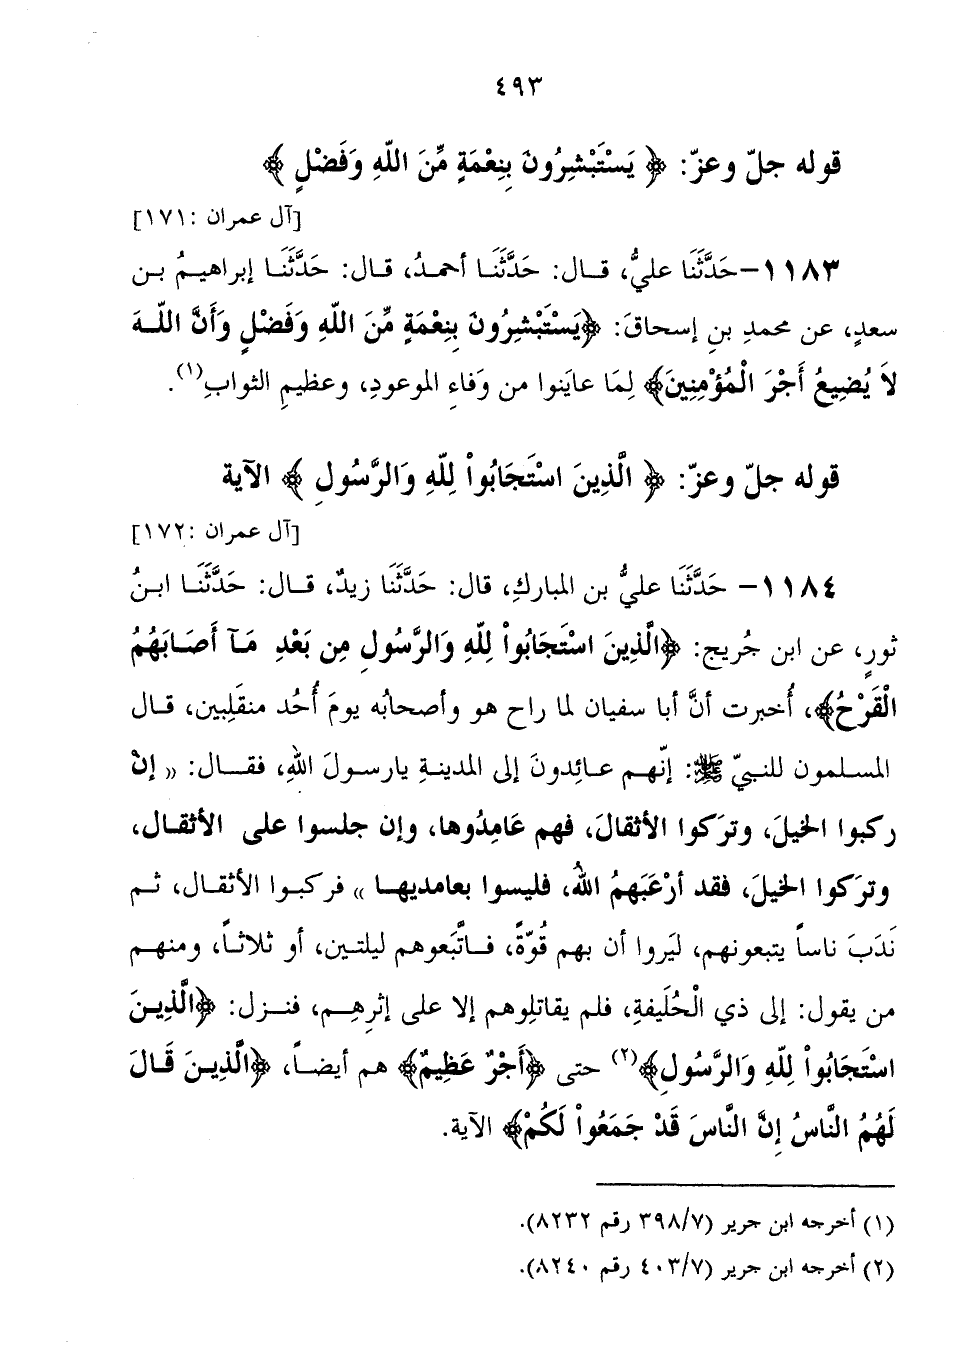 ٤٩٣
قوله جلّ وعزّ: ﴿ يَسْتَبْشِرُونَ بِنِعْمَةٍ مِّنَ اللّهِ وَفَضْلٍ ﴾
[آل عمران :١٧١]
١١٨٣- حَدَّثَنَا عليُّ، قال: حَدَّثَنَا أحمدُ، قال: حَدَّثَنَا إبراهيمُ بن
سعدٍ، عن محمدِ بنِ إسحاقَ: ﴿يَسْتَبْشِرُونَ بِنِعْمَةٍ مِّنَ اللّهِ وَفَضْلٍ وَأَنَّ اللّهَ
لاَ يُضِيعُ أَجْرَ الْمُؤْمِنِينَ﴾ لِمَا عايَنوا من وَفاءِ الموعودِ، وعظيمِ الثوابِ(١).
قوله جلّ وعزّ: ﴿ الَّذِينَ اسْتَجَابُواْ لِلّهِ وَالرَّسُولِ ﴾ الآية
[آل عمران :١٧٢]
١١٨٤- حَدَّثَنَا عليُّ بن المباركِ، قال: حَدَّثَنَا زيدٌ، قال: حَدَّثَنَا ابنُ
ثورٍ، عن ابن جُريج: ﴿الَّذِينَ اسْتَجَابُواْ لِلّهِ وَالرَّسُولِ مِن بَعْدِ مَآ أَصَابَهُمُ
الْقَرْحُ﴾، أُخبرت أنَّ أبا سفيان لما راح هو وأصحابُه يومَ أُحُد منقَلِبين، قال
المسلمون للنبيّ ﷺ: إنّهم عائِدونَ إلى المدينةِ يارسولَ اللهِ، فقال: « إنْ
ركبوا الخيلَ، وترَكوا الأثقالَ، فهم عَامِدُوها، وإن جلسوا على الأثقال،
وترَكوا الخيلَ، فقد أرْعَبَهمُ اللهُ، فليسوا بعامديها » فركبوا الأثقال، ثم
نَدَبَ ناساً يتبعونهم، ليَروا أن بهم قُوّةً، فاتَّبَعوهم ليلتين، أو ثلاثاً، ومنهم
من يقول: إلى ذي الْحُلَيفةِ، فلم يقاتلِوهم إلا على إثرِهِم، فنزل: ﴿الَّذِينَ
اسْتَجَابُواْ لِلّهِ وَالرَّسُولِ﴾(٢) حتى ﴿أَجْرٌ عَظِيمٌ﴾ هم أيضاً، ﴿الَّذِينَ قَالَ
لَهُمُ النَّاسُ إِنَّ النَّاسَ قَدْ جَمَعُواْ لَكُمْ﴾ الآية.
(١) أخرجه ابن جرير (٣٩٨/٧ رقم ٨٢٣٢).
(٢) أخرجه ابن جرير (٤٠٣/٧ رقم ٨٢٤٠).